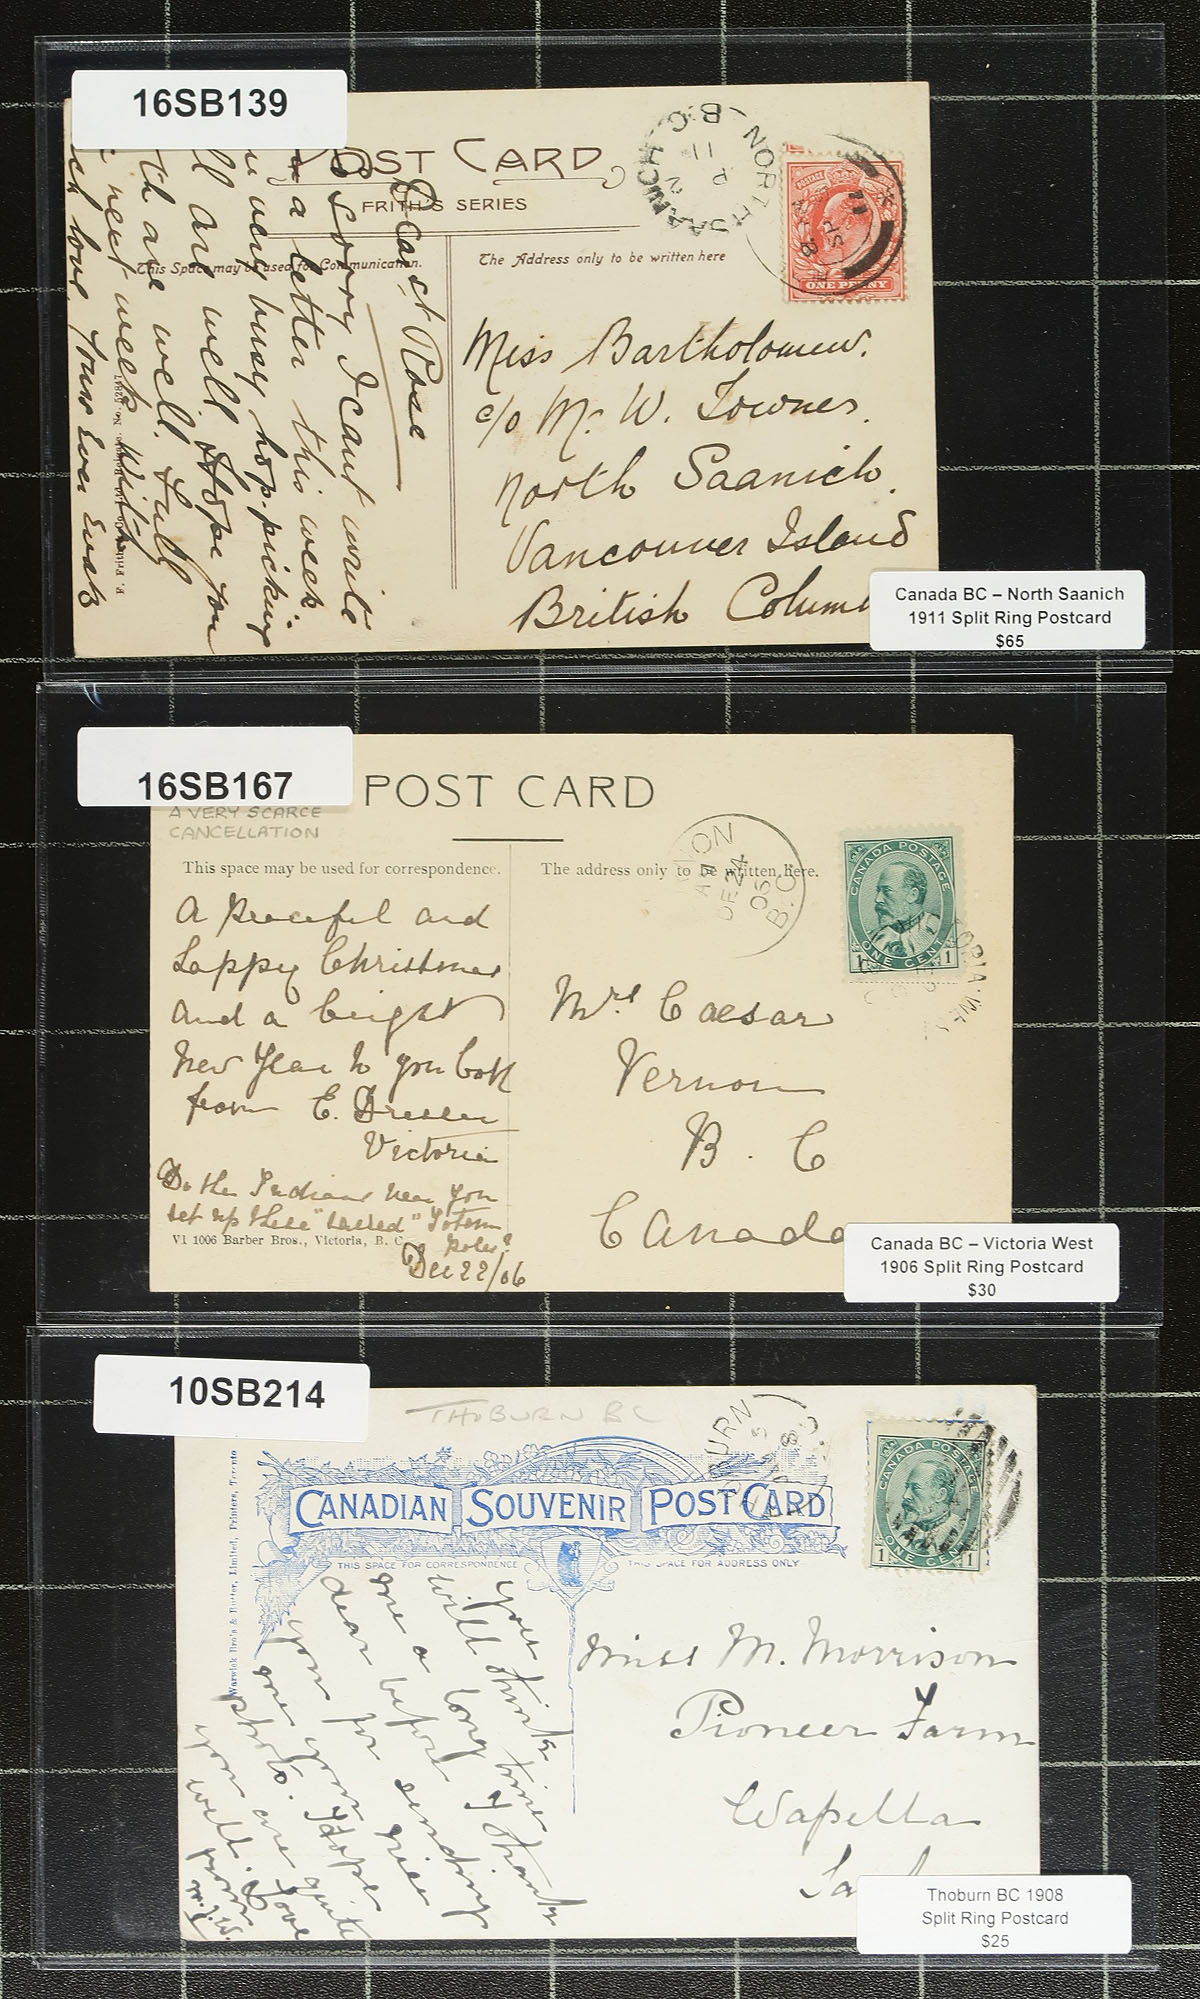 16SB139
POST CARD
FRITH'S SERIES
This Space may be used for Communication.
The Address only to be written here
NORTH SAANICH
B.C
11
ONE PENNY
Dearest Rose
so sorry I cant write
a letter this week.
very busy hop-picking
all are well Hope you
are well. Full
next week. With
love Yours Ever
Miss Bartholomew.
c/o Mr W. Towner.
North Saanich.
Vancouver Island
British
Canada BC – North Saanich
1911 Split Ring Postcard
$65
16SB167
A VERY SCARCE
CANCELLATION
POST CARD
This space may be used for correspondence.
The address only to be written here.
DE 24
06
B.C
CANADA POSTAGE
ONE CENT
A peaceful and
happy Christmas
and a bright
New Year to you both
from E.
Victoria
Do the Indians near you
set up these "sacred" Totem
poles?
V1 1006 Barber Bros., Victoria, B. C.
Dec 22/06
Mrs Caesar
Vernon
B. C
Canada
Canada BC – Victoria West
1906 Split Ring Postcard
$30
10SB214
THOBURN BC
CANADIAN SOUVENIR POST CARD
THIS SPACE FOR CORRESPONDENCE
THIS SPACE FOR ADDRESS ONLY
Warwick Bro's & Rutter, Limited, Printers, Toronto
CANADA POSTAGE
ONE CENT
you will think
me a long time
dear before I thank
you for sending
me your nice
photo. I hope
you are quite
well. Love
from
Miss M. Morrison
Pioneer Farm
Wapella
Thoburn BC 1908
Split Ring Postcard
$25